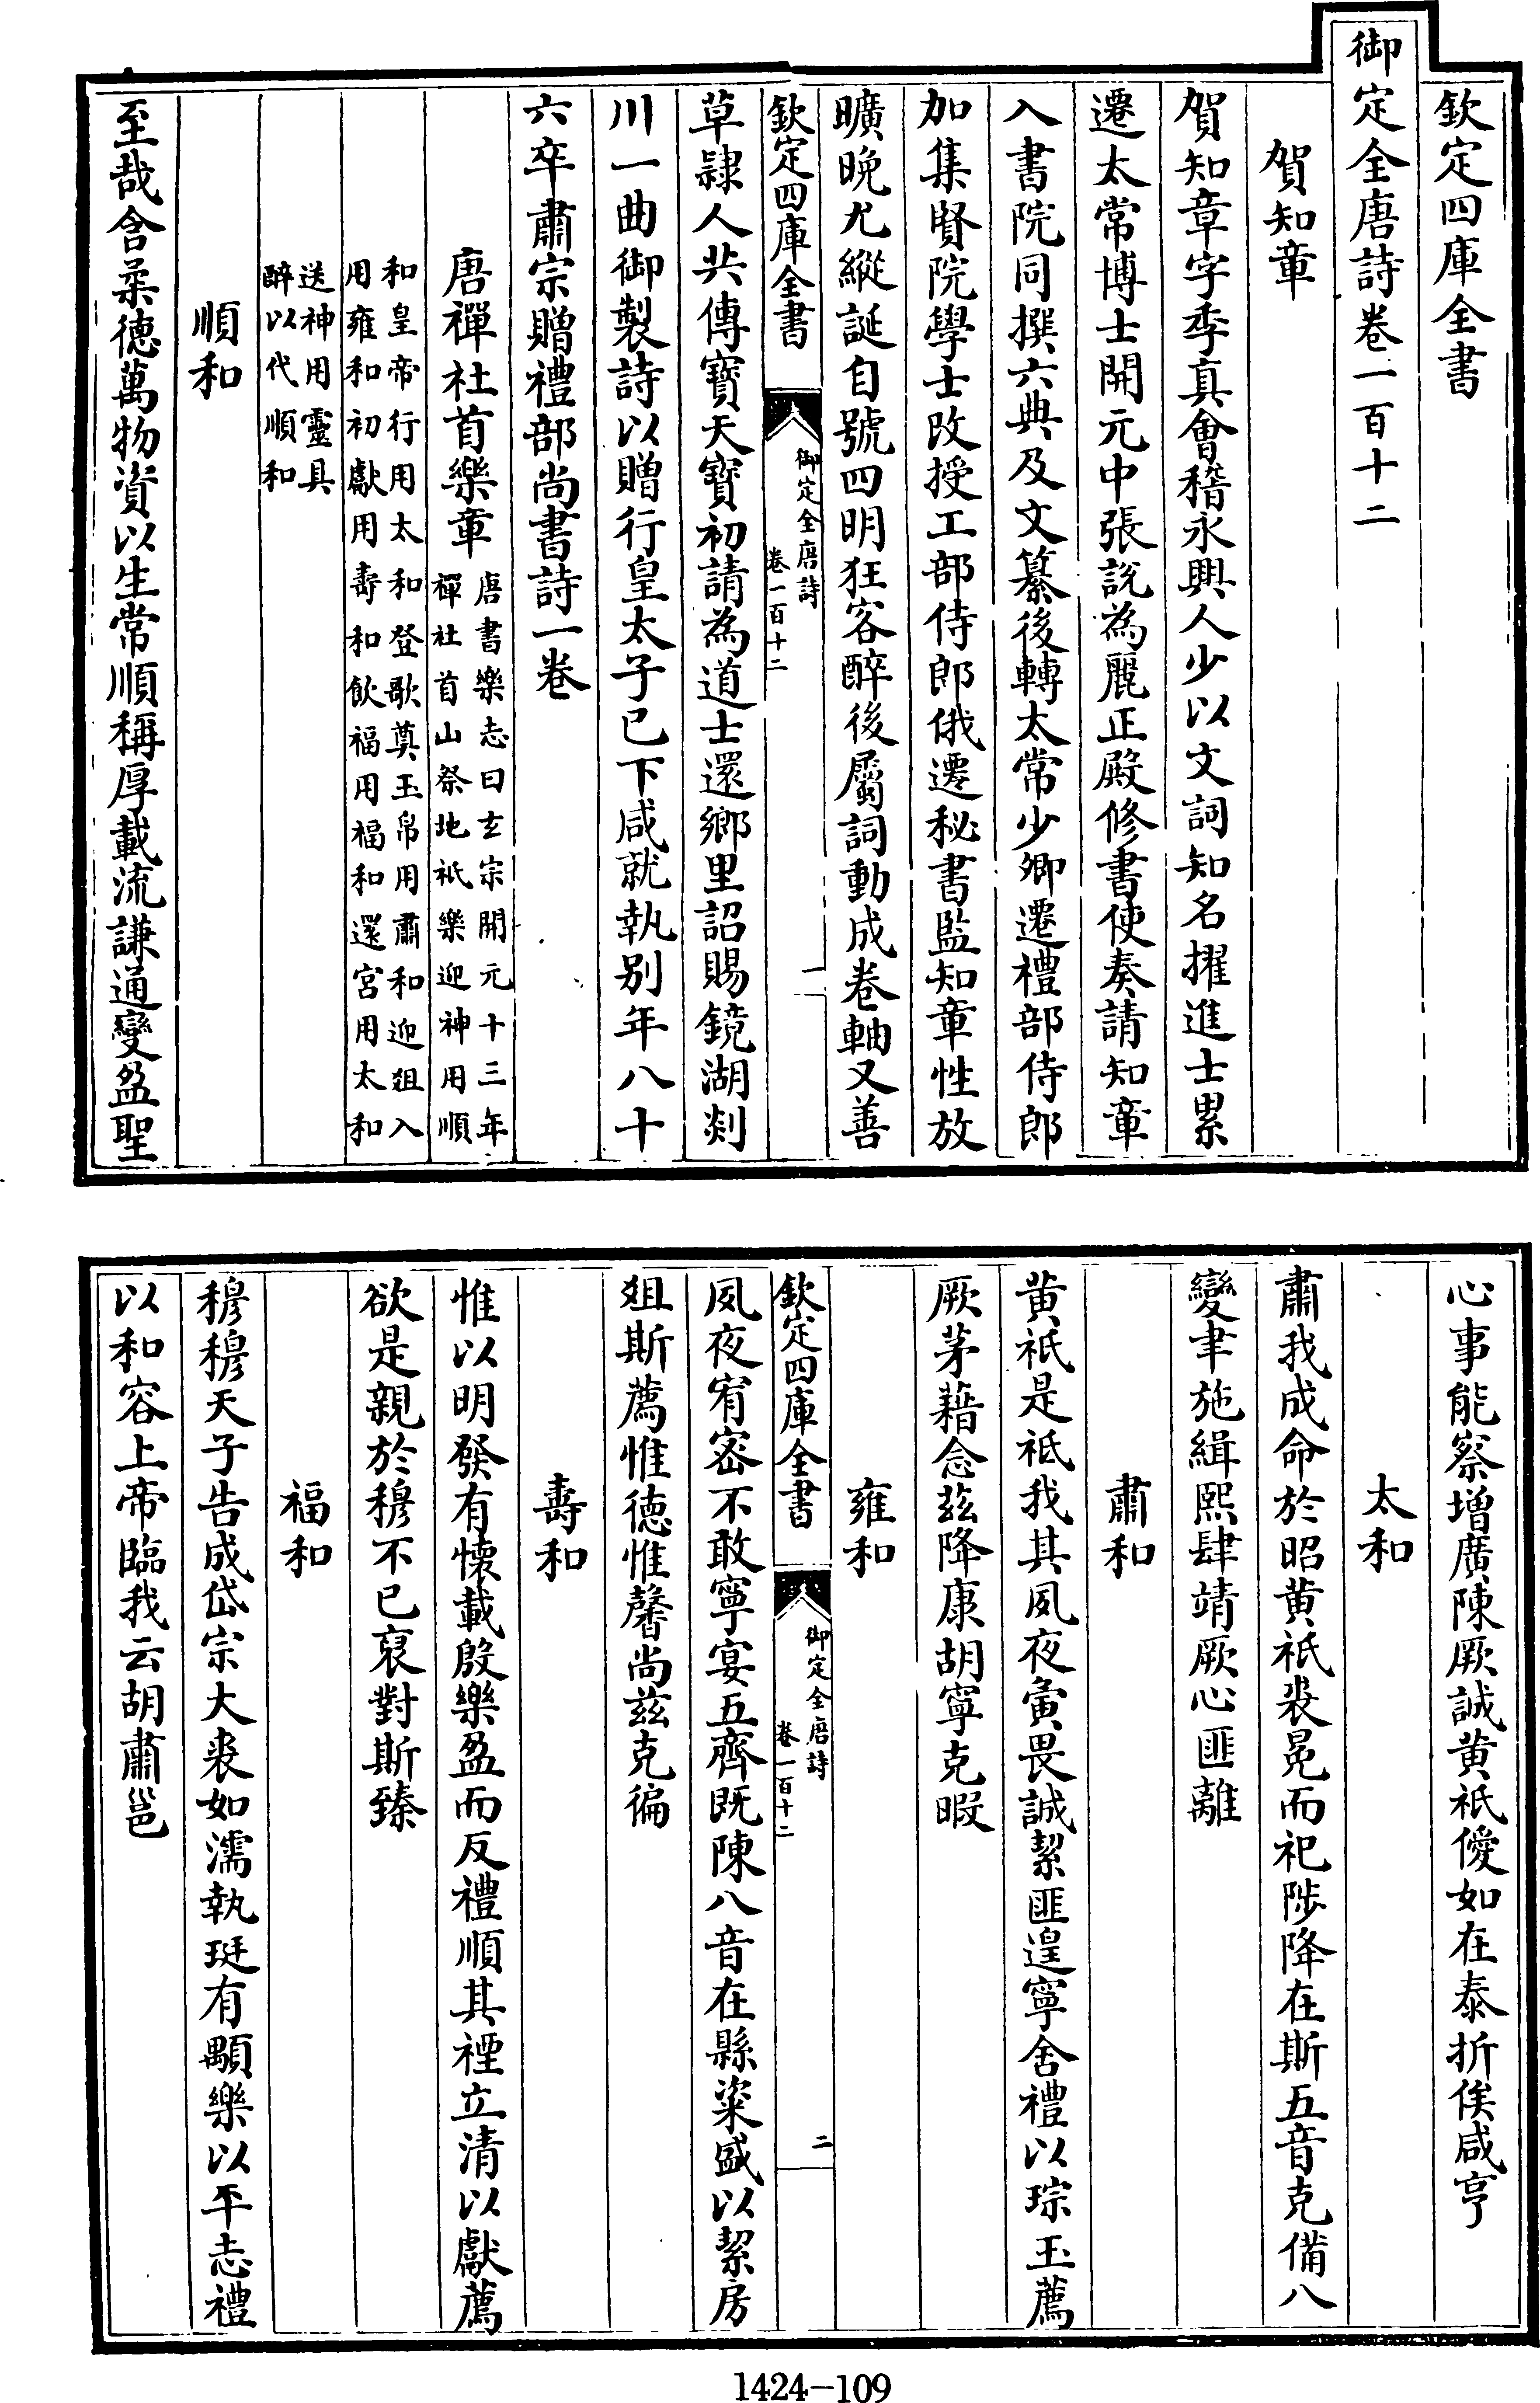 欽定四庫全書
御定全唐詩卷一百十二
賀知章
賀知章字季真會稽永興人少以文詞知名擢進士累
遷太常博士開元中張說為麗正殿修書使奏請知章
入書院同撰六典及文纂後轉太常少卿遷禮部侍郎
加集賢院學士改授工部侍郎俄遷秘書監知章性放
曠晚尤縱誕自號四明狂客醉後屬詞動成卷軸又善
欽定四庫全書
御定全唐詩
卷一百十二
一
草隷人共傳寳天寳初請為道士還鄉里詔賜鏡湖剡
川一曲御製詩以贈行皇太子已下咸就執别年八十
六卒肅宗贈禮部尚書詩一卷
唐禪社首樂章
唐書樂志曰玄宗開元十三年
禪社首山祭地祇樂迎神用順
和皇帝行用太和登歌奠玉帛用肅和迎俎入
用雍和初獻用壽和飲福用福和還宮用太和
送神用靈具
醉以代順和
順和
至哉含柔德萬物資以生常順稱厚載流謙通變盈聖
心事能察增廣陳厥誠黄祇僾如在泰折俟咸亨
太和
肅我成命於昭黄祇裘冕而祀陟降在斯五音克備八
變聿施緝熙肆靖厥心匪離
肅和
黄祇是祗我其夙夜寅畏誠絜匪遑寧舍禮以琮玉薦
厥茅藉念兹降康胡寧克暇
雍和
欽定四庫全書
御定全唐詩
卷一百十二
二
夙夜宥密不敢寧宴五齊既陳八音在縣粢盛以絜房
俎斯薦惟德惟馨尚兹克徧
壽和
惟以明發有懷載殷樂盈而反禮順其禋立清以獻薦
欲是親於穆不已裒對斯臻
福和
穆穆天子告成岱宗大裘如濡執珽有顒樂以平志禮
以和容上帝臨我云胡肅邕
1424-109